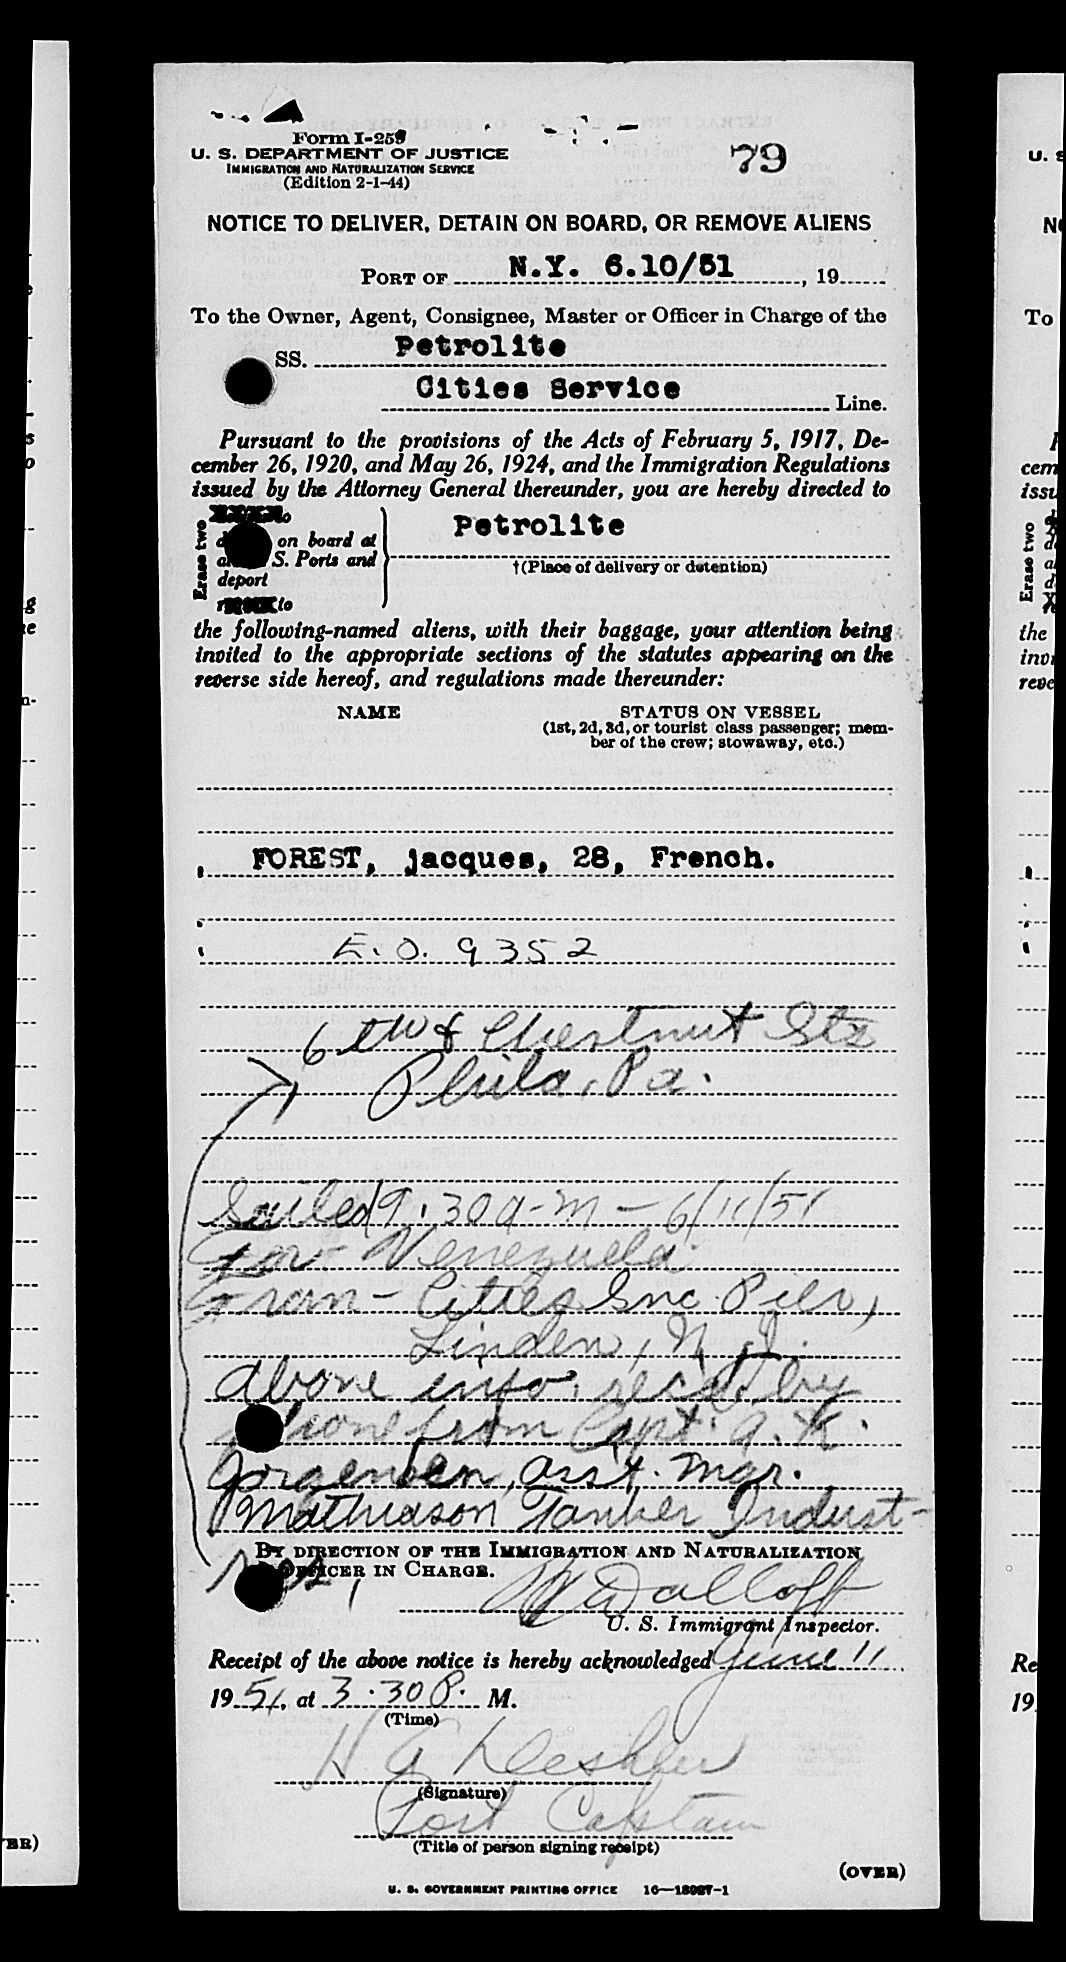 Form I-259
U. S. DEPARTMENT OF JUSTICE
IMMIGRATION AND NATURALIZATION SERVICE
(Edition 2-1-44)
79
NOTICE TO DELIVER, DETAIN ON BOARD, OR REMOVE ALIENS
PORT OF N.Y. 6.10/51, 19
To the Owner, Agent, Consignee, Master or Officer in Charge of the
SS. Petrolite
Cities Service Line.
Pursuant to the provisions of the Acts of February 5, 1917, De-
cember 26, 1920, and May 26, 1924, and the Immigration Regulations
issued by the Attorney General thereunder, you are hereby directed to
Erase two
to
on board at
S. Ports and
deport
to
Petrolite
†(Place of delivery or detention)
the following-named aliens, with their baggage, your attention being
invited to the appropriate sections of the statutes appearing on the
reverse side hereof, and regulations made thereunder:
NAME
STATUS ON VESSEL
(1st, 2d, 3d, or tourist class passenger; mem-
ber of the crew; stowaway, etc.)
FOREST, jacques, 28, French.
E.O. 9352
6th & Chestnut Sts
Phila, Pa.
Sailed 9.30 a-m - 6/11/51
For - Venezuela
From - Cities Pier,
Linden, N.J.
above info. recd. by
phone from Capt. A. K.
Jorgensen, asst. mgr.
Mathiason Tanker Indust-
ries,
BY DIRECTION OF THE IMMIGRATION AND NATURALIZATION
OFFICER IN CHARGE.
U. S. Immigrant Inspector.
Receipt of the above notice is hereby acknowledged June 11
1951, at 3.30 P. M.
(Time)
(Signature)
Port Captain
(Title of person signing receipt)
(OVER)
U. S. GOVERNMENT PRINTING OFFICE 16—18927-1